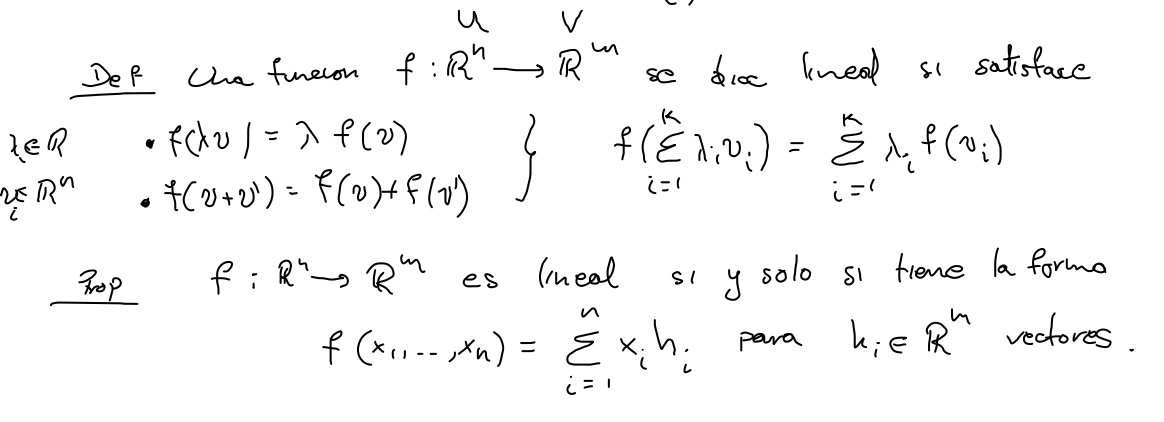 U V
Def Una funcion f : ℝⁿ ⟶ ℝᵐ se dice lineal si satisface
λᵢ∈ℝ • f(λv) = λ f(v) } f(∑_{i=1}^{k} λᵢvᵢ) = ∑_{i=1}^{k} λᵢ f(vᵢ)
vᵢ∈ℝⁿ • f(v+v') = f(v)+f(v')
Prop f : ℝⁿ ⟶ ℝᵐ es lineal si y solo si tiene la forma
f (x₁,..,xₙ) = ∑_{i=1}^{n} xᵢhᵢ para hᵢ∈ ℝᵐ vectores.